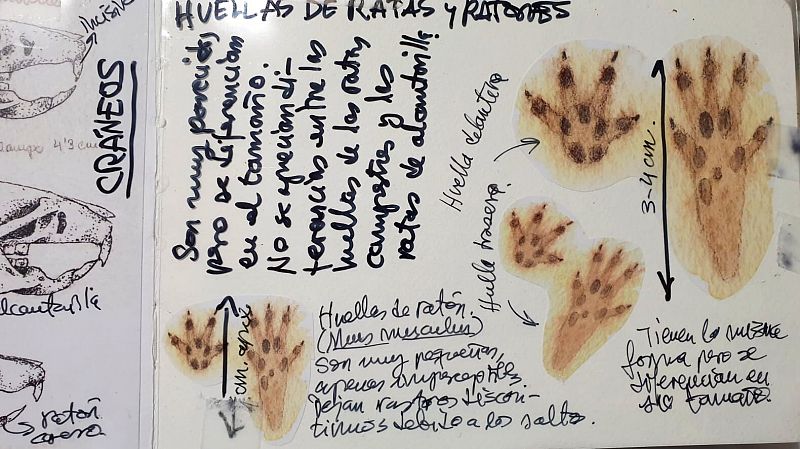 HUELLAS DE RATAS y RATONES
incisivo
CRÁNEOS
campo 4'3 cm
alcantarilla
ratón
casero
Son muy parecidas
pero se diferencian
en el tamaño.
No se aprecian di-
ferencias entre las
huellas de las ratas
campestres y las
ratas de alcantarilla
Huella delantera
Huella trasera
3-4 cm.
cm. aprox
Huellas de ratón.
(Mus musculus)
Son muy pequeñas,
apenas imperceptibles.
Dejan rastros discon-
tinuos debido a los saltos.
Tienen la misma
forma pero se
diferencian en
su tamaño.